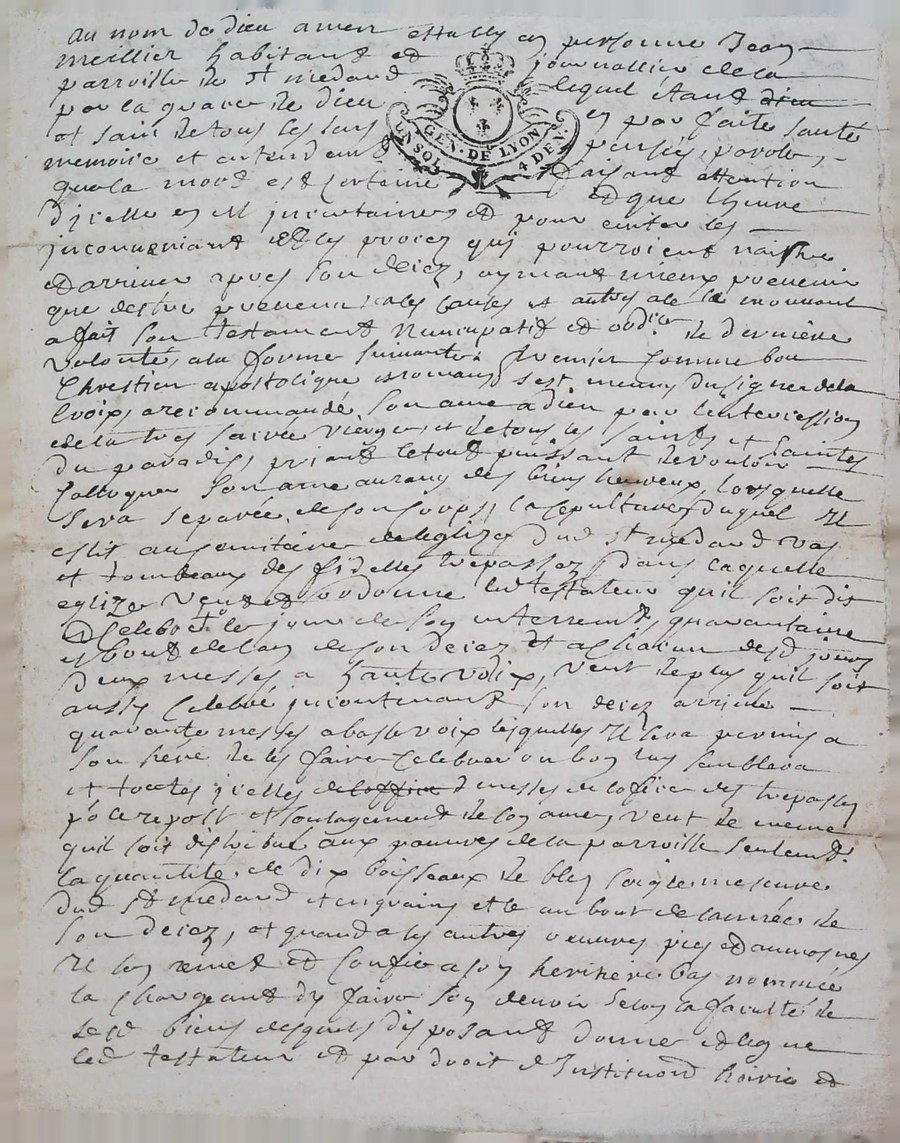 au nom de dieu amen estably en personne Jean
meillier habitant et journallier de la
parroisse de st medard lequel étant dieu
par la grace de dieu en parfaite santé
et sain de tous ses sens pensée, parole,
memoire et entendemt faisant attention
que la mort est certaine et que lheure
dicelle est incertaine et pour eviter les
inconveniant et les procez qui pourroient naistre
et arriver apres son decez, aymant mieux prevenir
que destre prevenu, a les causes et autres a ce le mouvant
a fait son testament Nuncupatif et ordre de derniere
volonté, a la forme suivante. premier comme bon
Chretien apostolique romain s'est muny du signe de la
Croix, a recommandé son ame a dieu par l'intercession
de la tres sainte vierge, et de tous les saints et saintes
du paradis, priant le tout puissant de vouloir
Colloquer son ame au rang des bien heureux, lorsquelle
sera separée de son corps, la sepulture duquel Il
eslit au cemitiere de leglize dud st medard vas
et tombeaux des fidelles trepassez, dans laquelle
eglize veut et ordonne led testateur quil soit dit
et celebré le jour de son enterremt, quarantaine
et bout de lan de son decez et a chacun desd jours
deux messes a haute voix, veut de plus quil soit
aussy Celebré incontinant son decez arrivé
quarante messes a basse voix lesquelles Il sera permis a
son hére de les faire Celebrer ou bon luy semblera
et toutes icelles de loffice d messes de lofice des trepassés
p̄ le repost et soulagement de son ame, veut de meme
quil soit distribué aux pauvres de la parroisse seulemt
la quantité de dix boisseaux de bled soigle mesure
dud st medard et en grains et le au bout de lannée de
son decez, et quand a les autres oeuvres pies et aumosnes
Il sen remet et confie a son heritiere bas nommée
la Chargeant dy faire son devoir selon la faculté de
sesd biens desquels disposant donne et legue
led testateur et par droit d'Institution hoirie et